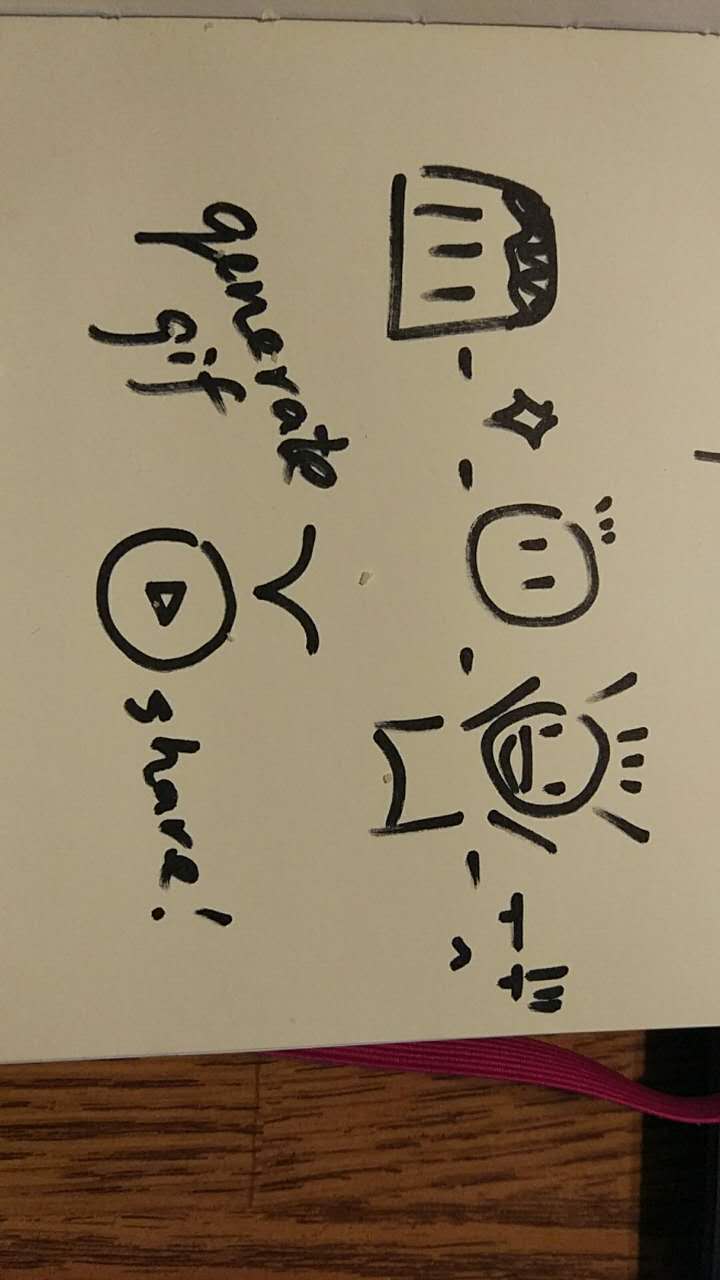 generate
gif
share!